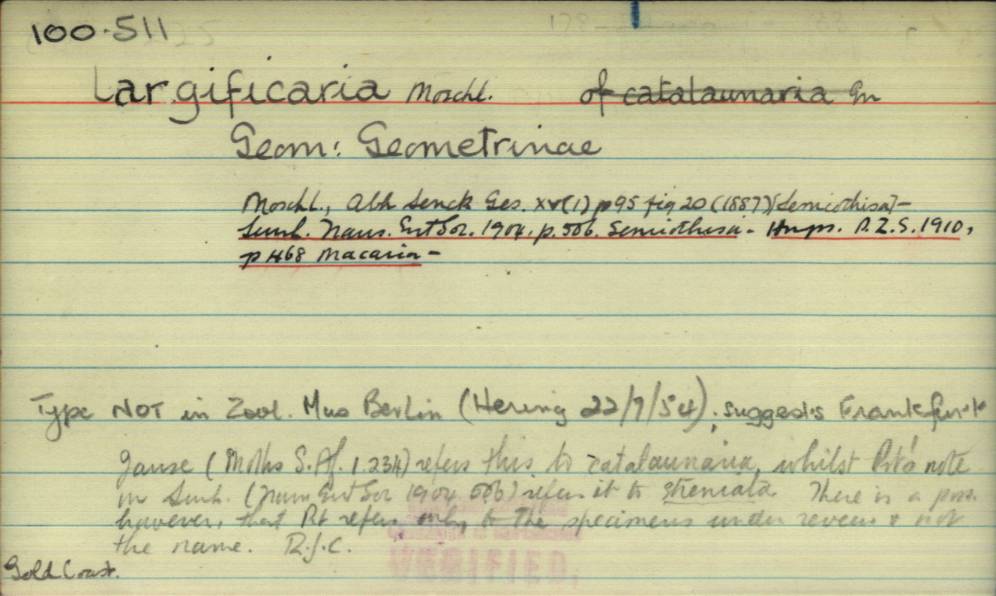 100.511
Largificaria Moschl. of catalaunaria Gn
Geom: Geometrinae
Moschl., Abh Senck Ges. xv(1) p95 fig 20 (1887) [Semiothisa] -
Swinh. Trans. Ent Soc. 1904. p. 506. Semiothisa - Hmps. P.Z.S. 1910,
p 468 Macaria -
Type NOT in Zool. Mus Berlin (Hering 22/9/54); suggests Frankfurt
Janse (Moths S. Af. 1. 234) refers this to catalaunaria, whilst Prt's note
in Swinh. (Trans Ent Soc 1904 506) refers it to streniata. There is a poss.
however, that Prt refers only to the specimens under review & not
the name. D.J.C.
Gold Coast.
VERIFIED.